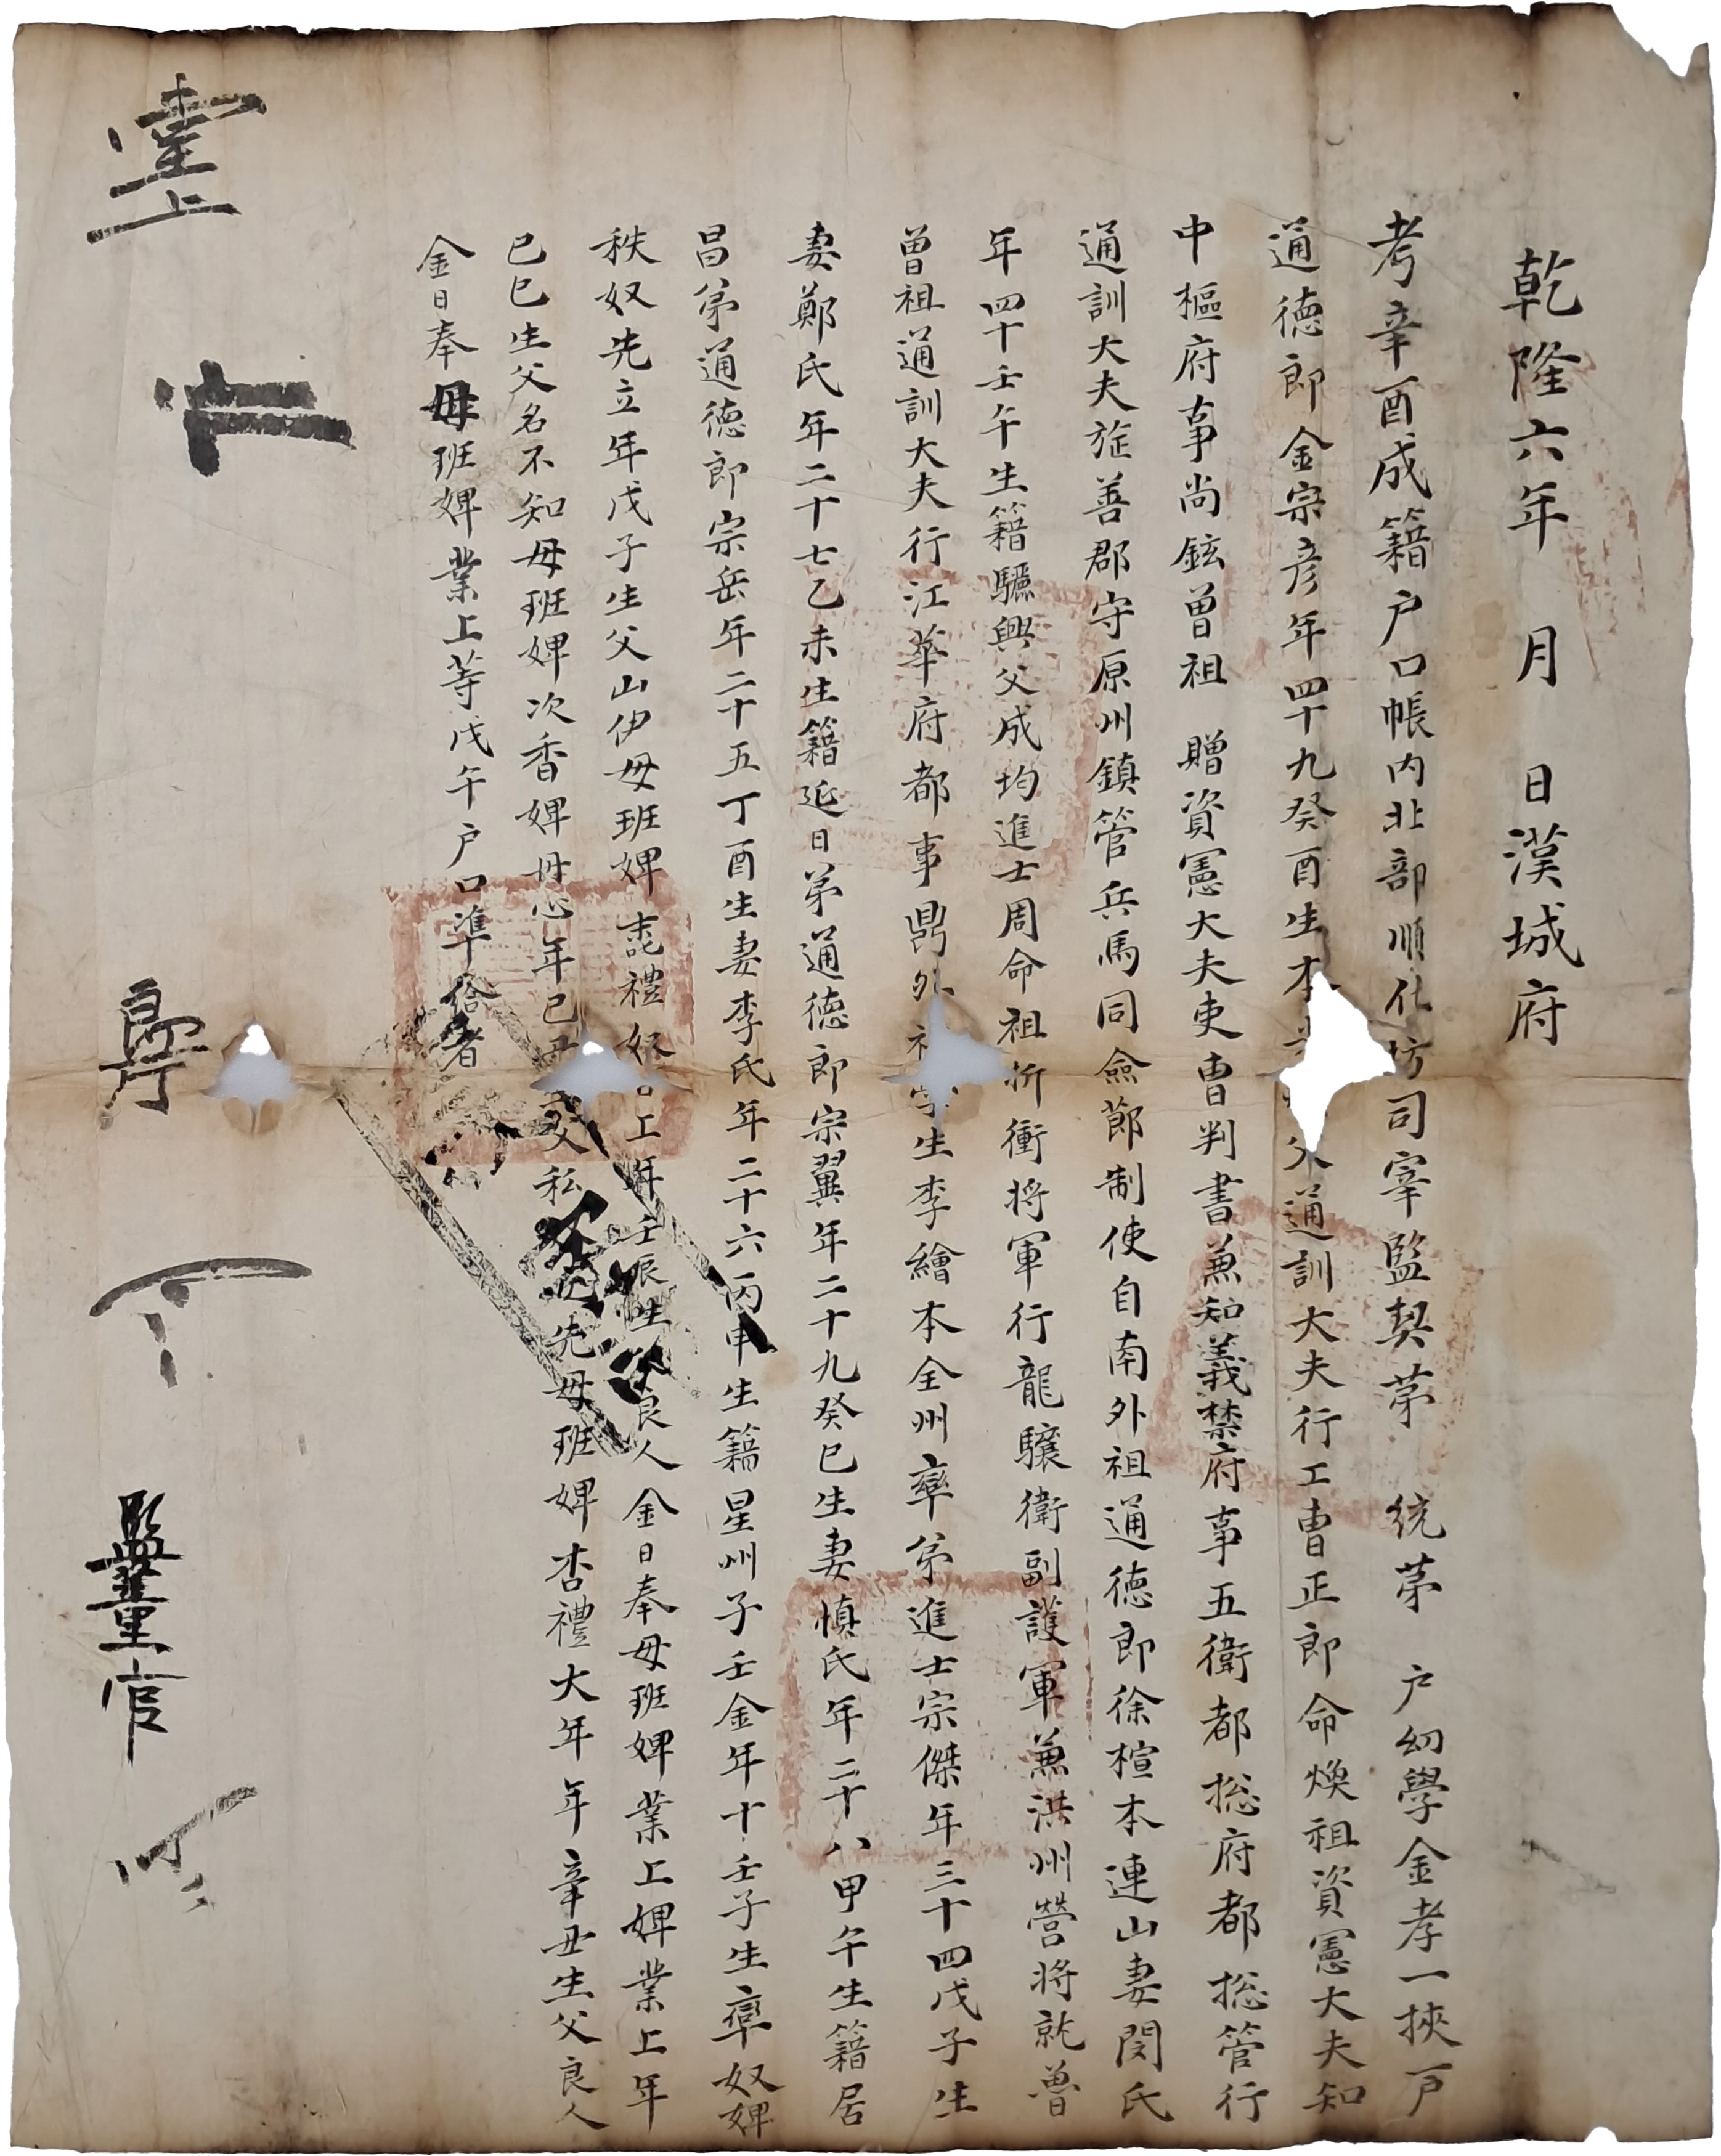 乾隆六年 月 日漢城府
考辛酉成籍户口帳内北部順化坊司宰監契苐 統苐 户幼學金孝一挾戸
通德郎金宗彦年四十九癸酉生本 通訓大夫行工曺正郎命煥祖資憲大夫知
中樞府事尚鉉曾祖 贈資憲大夫吏曺判書兼知義禁府事五衛都摠府都摠管行
通訓大夫旌善郡守原州鎮管兵馬同僉節制使自南外祖通德郎徐楦本連山妻閔氏
年四十壬午生籍驪興父成均進士周命祖折衝将軍行龍驤衛副護軍兼洪州營将就魯
曾祖通訓大夫行江華府都事鼎外 生李繪本全州率弟進士宗傑年三十四戊子生
妻鄭氏年二十七乙未生籍延日弟通德郎宗翼年二十九癸巳生妻慎氏年二十八甲午生籍居
昌弟通德郎宗岳年二十五丁酉生妻李氏年二十六丙申生籍星州子壬金年十壬子生率奴婢
秩奴先立年戊子生父山伊母班婢 禮奴 工年壬辰生父良人金日奉母班婢業上婢業上年
己巳生父名不知母班婢次香婢 年己 父私奴 先母班婢杏禮大年年辛丑生父良人
金日奉母班婢業上等戊午户口凖給者
堂上
郎廳
監董官